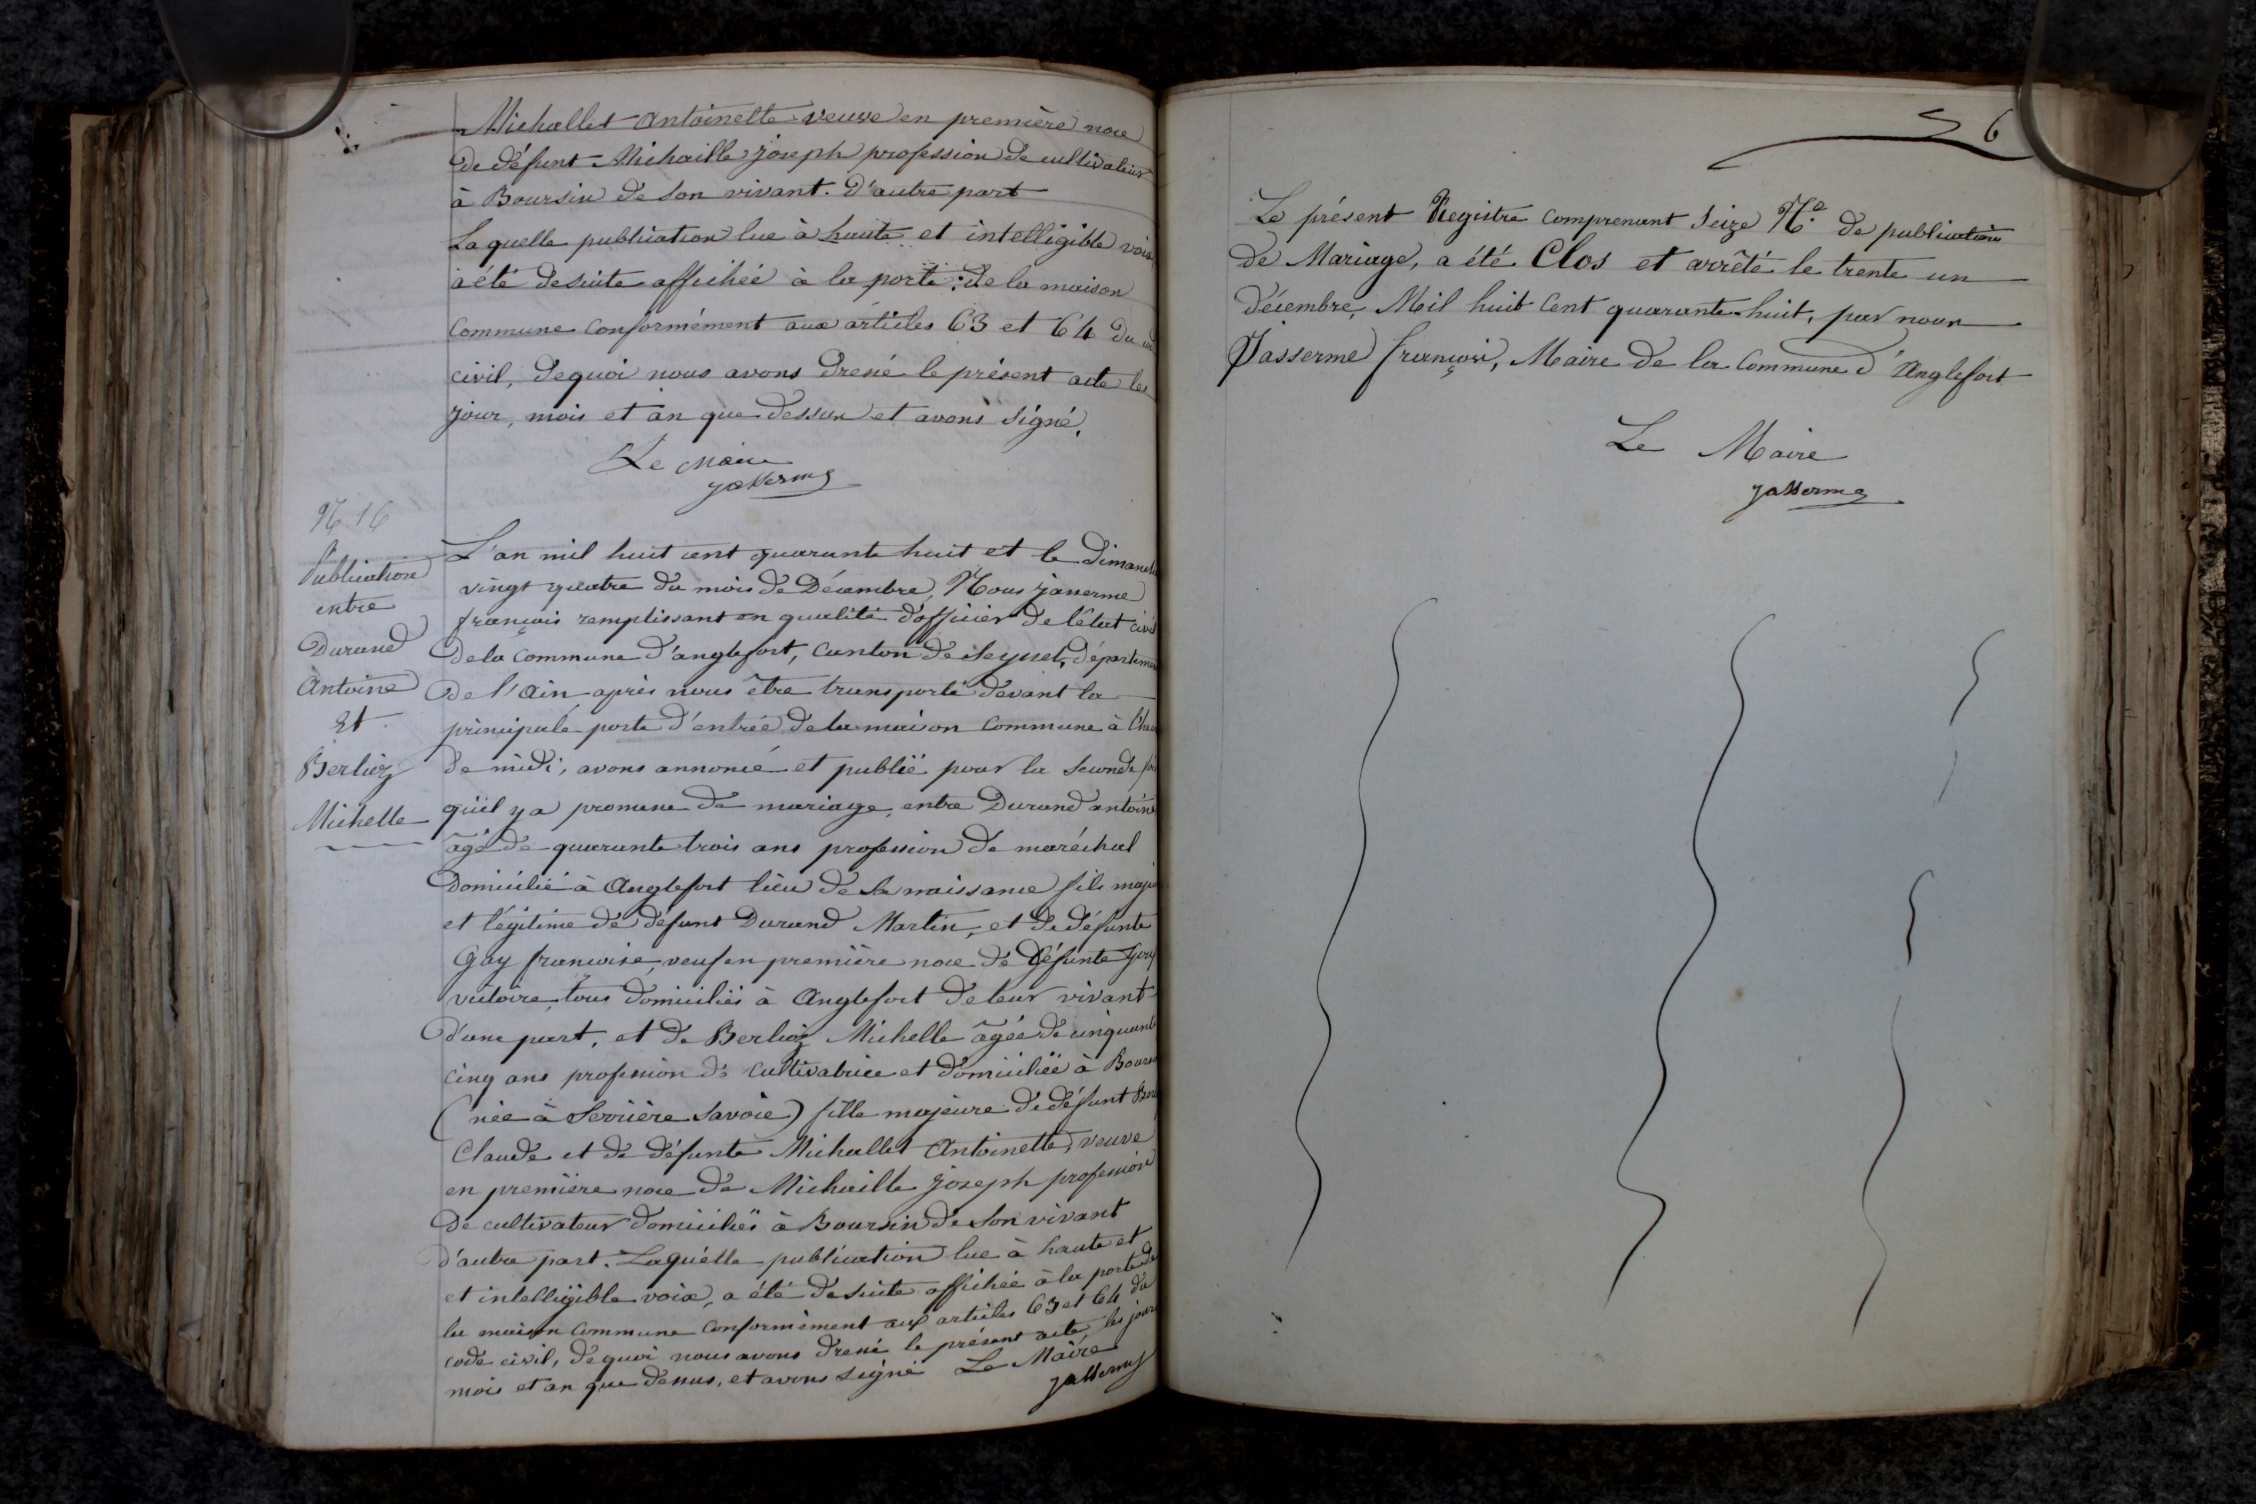 Michallet Antoinette veuve en première noce
de défunt Michaille joseph profession de cultivateur
à Boursin de son vivant. d'autre part
Laquelle publication lue à haute et intelligible voix
a été desuite affichée à la porte de la maison
commune conformément aux articles 63 et 64 du
civil, dequoi nous avons dressé le présent acte les
jour, mois et an que dessus et avons signé.
Le Maire
jasserme
N 16
Publication
entre
Durand
Antoine
Et
Berlioz
Michelle
L'an mil huit cent quarante huit et le dimanche
vingt quatre du mois de Décembre, Nous jasserme
françois remplissant en qualité d'officier de l'état civil
de la commune d'anglefort, canton de seyssel, département
de l'ain après nous être transporté devant la
principale porte d'entrée de la maison commune à l'heure
de midi, avons annoncé et publié pour la seconde fois
qu'il y a promesse de mariage, entre Durand antoine
âgé de quarante trois ans profession de maréchal
domicilié à Anglefort lieu de sa naissance fils majeur
et légitime de défunt Durand Martin, et de défunte
Gay francoise, veuf en première noce de défunte
victoire, tous domiciliés à Anglefort de leur vivant
d'une part, et de Berlioz Michelle âgée de cinquante
cinq ans profession de cultivatrice et domiciliée à Boursin
(née à Serrière Savoie) fille majeure de défunt
Claude et de défunte Michallet Antoinette, veuve
en première noce de Michaille joseph profession
de cultivateur domiciliés à Boursin de son vivant
d'autre part. Laquelle publication lue à haute et
et intelligible voix, a été desuite affichée à la porte de
la maison commune conformément aux articles 63 et 64 du
code civil, dequoi nous avons dressé le présent acte, les jour
mois et an que dessus, et avons signé Le Maire
jasserme
6
Le présent Registre comprenant seize N.º de publication
de Mariage, a été Clos et arrêté le trente un
décembre, Mil huit cent quarante-huit, par nous
Jasserme françois, Maire de la commune d'Anglefort
Le Maire
jasserme